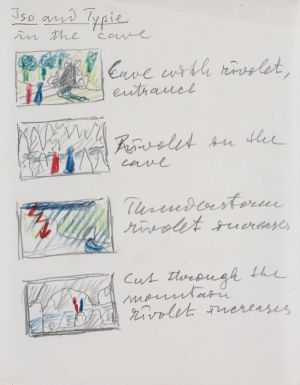 Iso and Typie
in the cave
Cave with rivolet,
entrance
Rivolet in the
cave
Thunderstorm
rivolet increases
Cut through the
mountain
rivolet increases